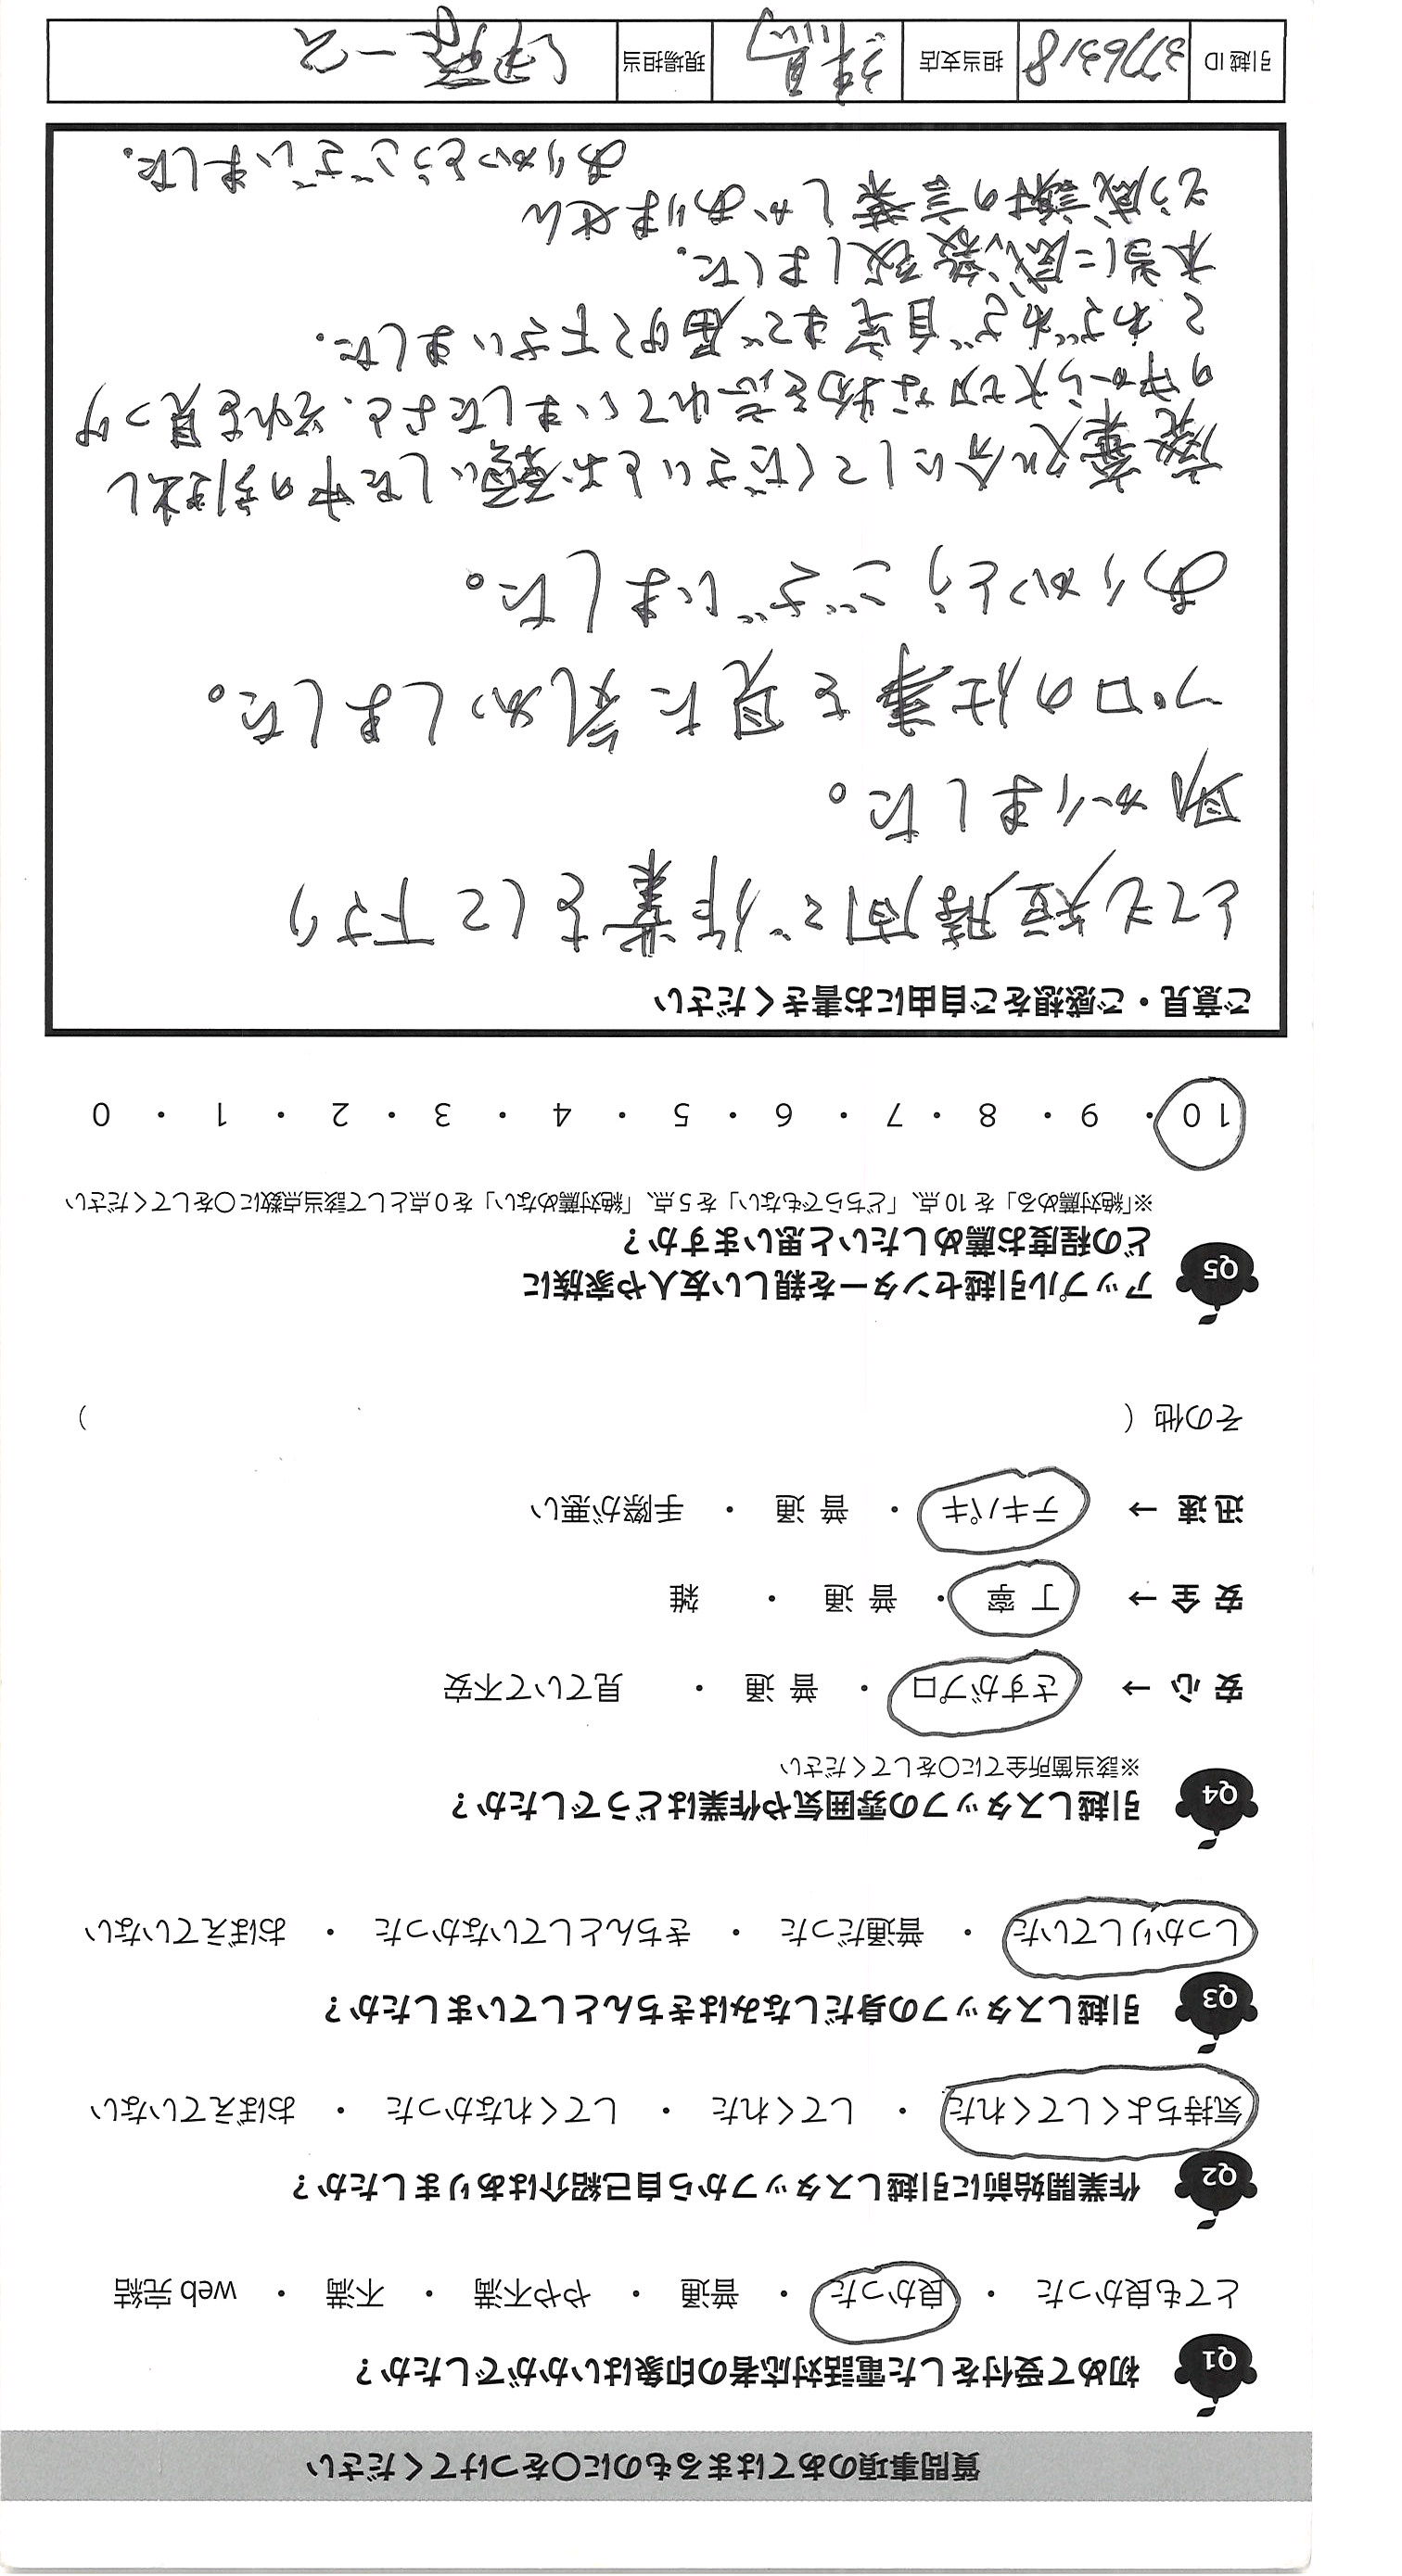 質問事項のあてはまるものに○をつけてください
Q1 初めて受付をした電話対応者の印象はいかがでしたか？
とても良かった ・ 良かった ・ 普通 ・ やや不満 ・ 不満 ・ web 完結
Q2 作業開始前に引越しスタッフから自己紹介はありましたか？
気持ちよくしてくれた ・ してくれた ・ してくれなかった ・ おぼえていない
Q3 引越しスタッフの身だしなみはきちんとしていましたか？
しっかりしていた ・ 普通だった ・ きちんとしていなかった ・ おぼえていない
Q4 引越しスタッフの雰囲気や作業はどうでしたか？
※該当箇所全てに○をしてください
安 心 → さすがプロ ・ 普 通 ・ 見ていて不安
安 全 → 丁 寧 ・ 普 通 ・ 雑
迅 速 → テキパキ ・ 普 通 ・ 手際が悪い
その他（ ）
Q5 アップル引越センターを親しい友人や家族に
どの程度お薦めしたいと思いますか？
※「絶対薦める」を 10 点、「どちらでもない」を 5 点、「絶対薦めない」を 0 点として該当点数に○をしてください
10 ・ 9 ・ 8 ・ 7 ・ 6 ・ 5 ・ 4 ・ 3 ・ 2 ・ 1 ・ 0
ご意見・ご感想をご自由にお書きください
とても短時間で作業をして下さり
助かりました。
プロの仕事を見た気がしました。
ありがとうございました。
廃棄処分にしてくださいとお願いした中の引き出し
の中から大切な物を忘れていましたよと、それを見つけ
てわざわざ自宅まで届けて下さいました。
本当に感激致しました。
もう感謝の言葉しかありません
ありがとうございました。
引越 ID 3776318 担当支店 練馬 現場担当 伊藤一